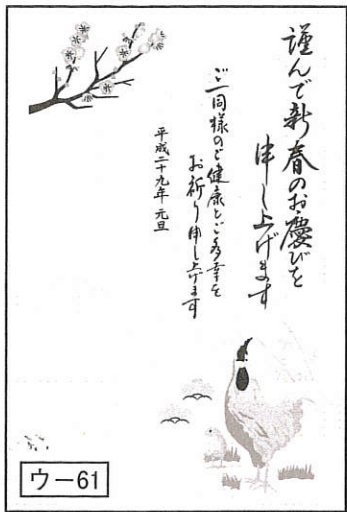 謹んで新春のお慶びを
申し上げます
ご一同様のご健康とご多幸を
お祈り申し上げます
平成二十九年 元旦
ウー61